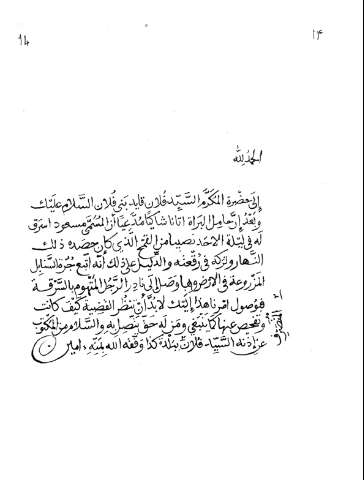 14 ١٤
الحمد لله
إلى حضرة المكرم السيد فلان قايد بني فلان السلام عليك
وبعد إن حامل البراة أتانا شاكيا مدعيا أن المسمى مسعود اسرق
له في ليلة الاحد نصيبا من القمح الذي كان حصده ذلك
النهار وتركه في رقعته والدليل على ذلك أنه اتبع جرة السنابل
المزروعة في الارض وها وصل إلى نادر الرجل المتهوم بالسرقة
فبوصول امرنا هذا إليك لابد أن تنظر القضية كيف كانت
وتفحص عنها كما ينبغي ومن له حق يتصل به والسلام من المكتوب
عن إذنه السيد فلان ببلد كذا وفقه الله بمنه امين